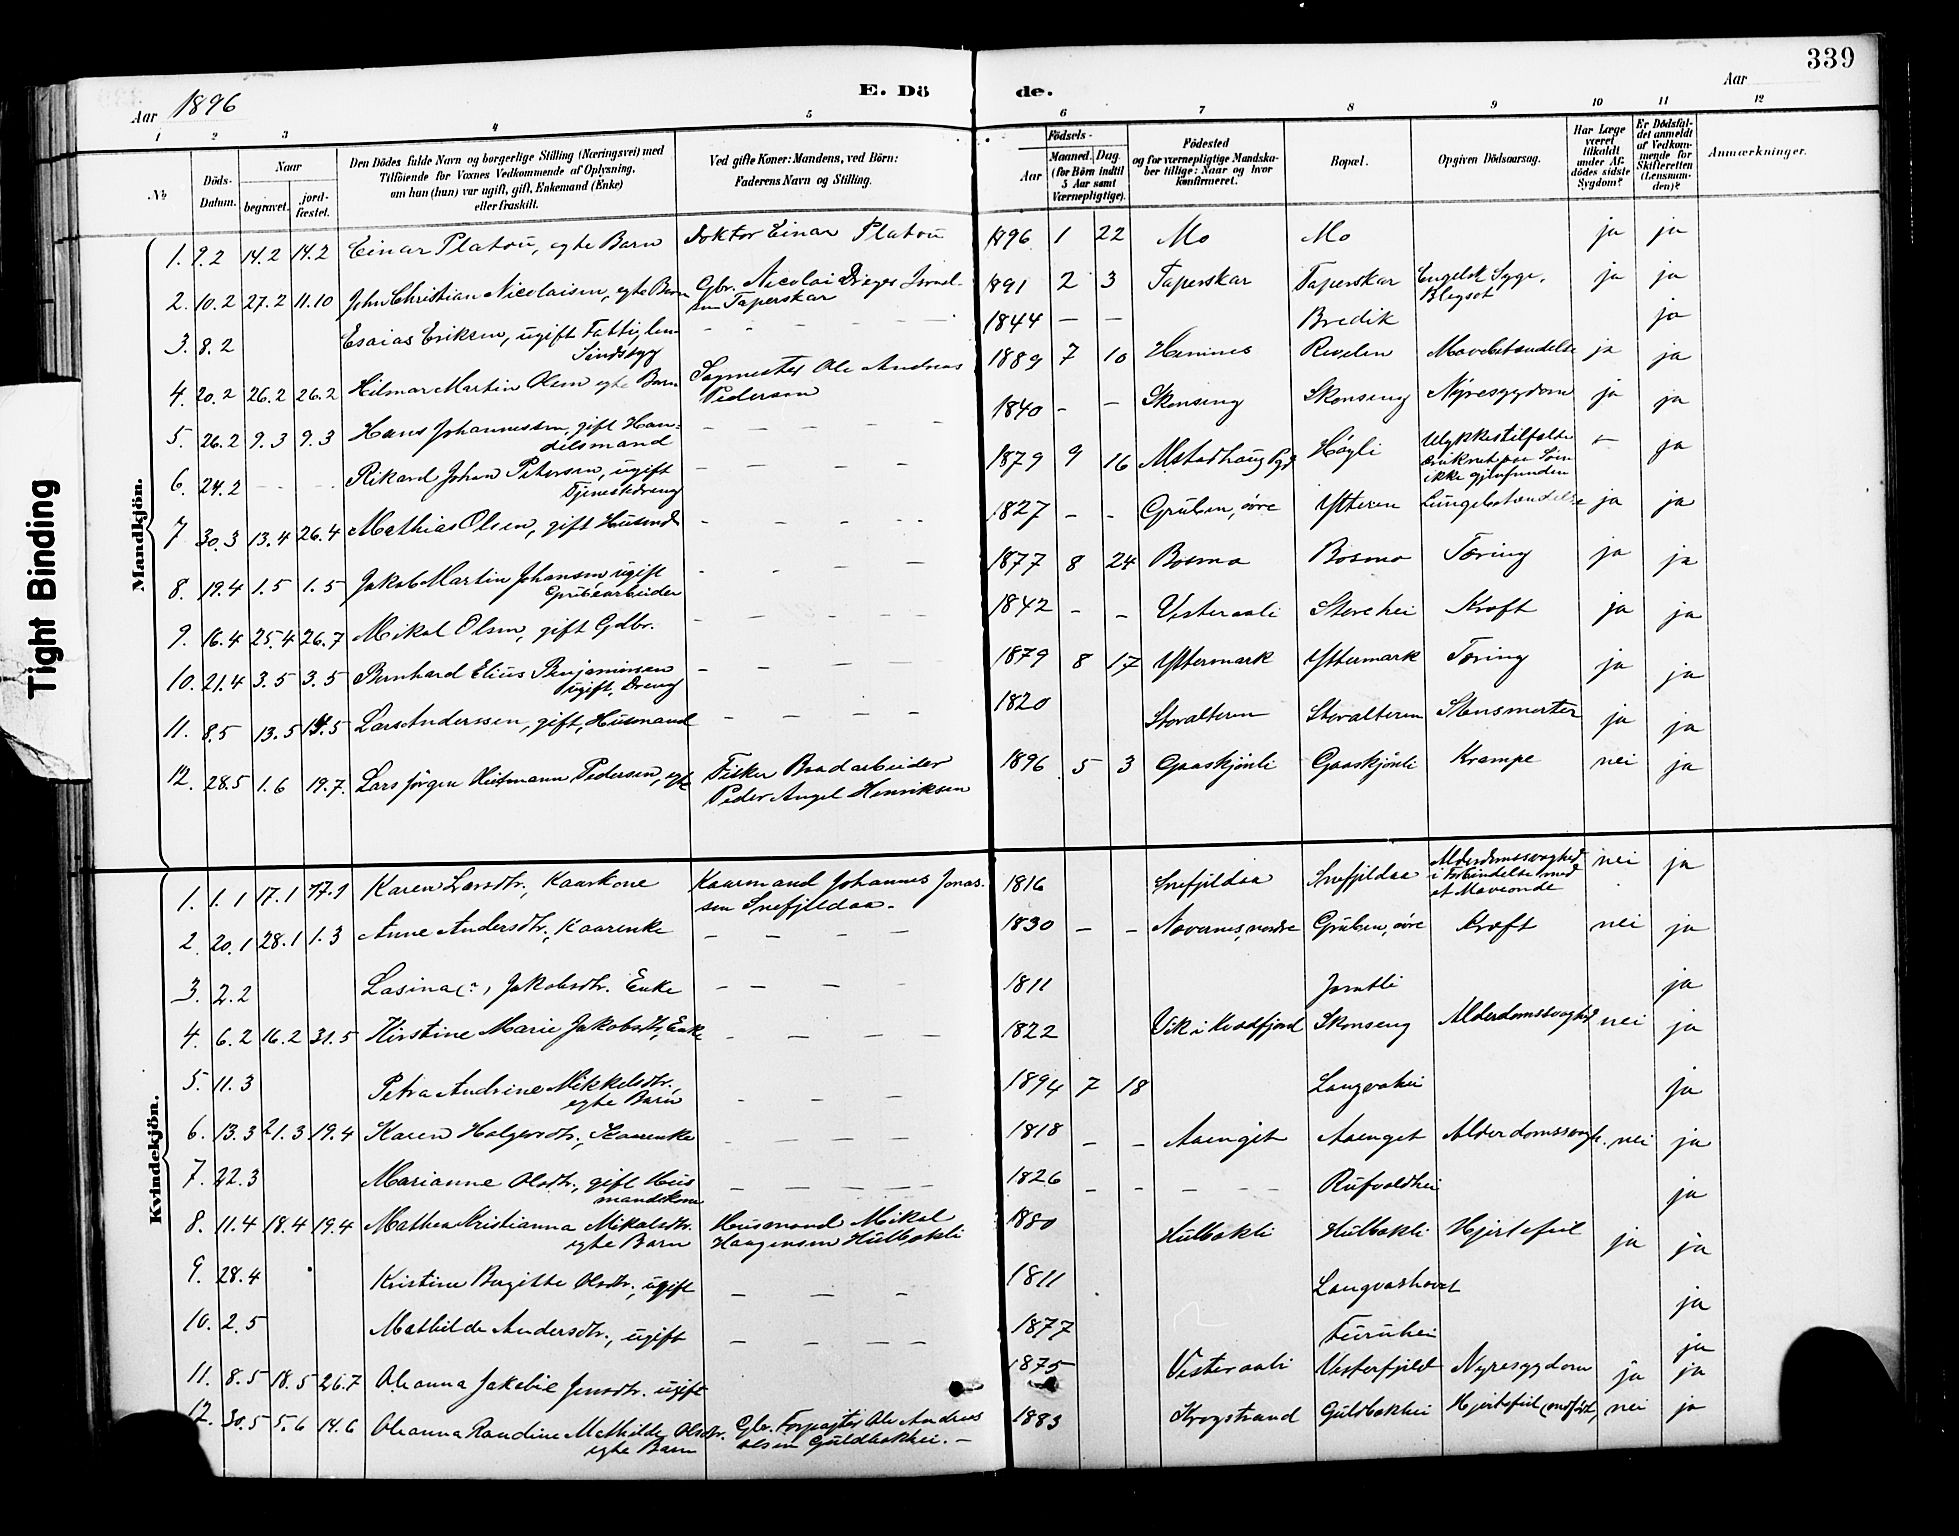 339
Aar 1896
E. Döde.
Aar
1 2 3 4 5 6 7 8 9 10 11 12
No.
Döds-Datum.
Naar
begravet.
jord-fæstet.
Den Dödes fulde Navn og borgerlige Stilling (Næringsvei) med
Tilföiende for Voxnes Vedkommende af Oplysning,
om han (hun) var ugift, gift, Enkemand (Enke)
eller fraskilt.
Ved gifte Koner: Mandens, ved Börn:
Faderens Navn og Stilling.
Födsels-
Aar
Maaned. Dag.
(for Börn indtil
5 Aar samt
Værnepligtige).
Födested
og for værnepligtige Mandska-
ber tillige: Naar og hvor
konfirmeret.
Bopæl.
Opgiven Dödsaarsag.
Har Læge
været
tilkaldt
under Af-
dödes sidste
Sygdom?
Er Dödsfal-
det anmeldt
af Vedkom-
mende for
Skifteretten
(Lensman-
den)?
Anmærkninger.
Tight Binding
Mandkjön.
1. 9.2 14.2 14.2 Einar Platou, egte Barn Doktor Einar Platou 1896 1 22 Mo Mo ja ja
2. 10.2 27.2 11.10 John Christian Nicolaisen, egte Barn Gbr. Nicolai Dreyer Israel-
sen Taperskar 1891 2 3 Taperskar Taperskar Engelsk Syge,
Blegsot ja ja
3. 8.2 Esaias Eriksen, ugift Fattiglem
Sindssyg – – – – – 1844 – – Bredik ja
4. 20.2 26.2 26.2 Hilmar Martin Olsen egte Barn Sagmester Ole Andreas
Pedersen 1889 7 10 Hemnes Revelen Mavebetændelse ja ja
5. 26.2 9.3 9.3 Hans Johannessen, gift Han-
delsmand – – – – – 1840 – – Skonseng Skonseng Nyresygdom ja ja
6. 24.2 – – Rikard Johan Petersen, ugift
Tjenestedreng – – – – 1879 9 16 Alstadhaug Pgd Högli Ulykkestilfælde
druknet paa Söen
ikke gjenfunden – ja
7 30.3 13.4 26.4 Mathias Olsen, gift Husmd – – – – – 1827 – – Gruben, övre Ytteren Lungebetændelse ja ja
8. 19.4 1.5 1.5 Jakob Martin Johansen ugift
Grubearbeider – – – – 1877 8 24 Bosmo Bosmo Tæring ja ja
9. 16.4 25.4 26.7 Mikal Olsen, gift Gdbr. – – – – – 1842 – – Vesteraali Storehei Kræft ja ja
10. 21.4 3.5 3.5 Bernhard Elius Benjaminsen
ugift, Dreng – – – – 1879 8 17 Yttermark Yttermark Tæring ja ja
11. 8.5 13.5 14.5 Lars Anderssen, gift, Husmand – – – – 1820 Storalteren Storalteren Stensmerter ja ja
12. 28.5 1.6 19.7. Lars Jörgen Heitmann Pedersen, egte Fisker Baadarbeider
Peder Angel Henriksen 1896 5 3 Gaaskjönli Gaaskjönli Krampe nei ja
Kvindekjön.
1. 1.1 17.1 17.1 Karen Larsdtr., Kaarkone Kaarmand Johannes Jonas-
sen Snefjeldaa. 1816 Snefjeldaa Snefjeldaa Alderdomssvaghed
i Forbindelse med
et Maveonde nei ja
2. 20.1 28.1 1.3 Anne Andersdtr., Kaarenke – – – – 1830 – – Nævernes, nordre Gruben, övre Kræft nei ja
3. 2.2 Lasina (?), Jakobsdtr. Enke – – – – 1811 Jamtli ja
4. 6.2 16.2 31.5 Kirstine Marie Jakobsdtr., Enke – – – – 1822 Vik i Kvædfjord Skonseng Alderdomssvaghed nei ja
5. 11.3 Petra Andrine Mikkelsdtr.,
egte Barn – – – 1894 7 18 Langvahei ja
6. 13.3 21.3 19.4 Karen Holgersdtr., Kaarenke – – – – 1818 – – Aaenget Aaenget Alderdomssvagh. nei ja
7. 22.3 Marianne Olsdtr., gift Hus
mandskone – – – – – 1826 – – – – – Rufvoldhei ja
8. 11.4 18.4 19.4 Mathea Kristianna Mikalsdtr.
egte Barn Husmand Mikal
Haagensen Hulbækli 1880 Hulbækli Hulbækli Hjertefeil ja ja
9. 28.4 Kristine Birgitte Olsdtr., ugift – – – 1811 Langvashovet ja
10. 2.5 Mathilde Andersdtr., ugift – – – – 1877 Furuhei ja
11. 8.5 18.5 26.7 Oleanna Jakobie Jensdtr. ugift 1875 Vesteraali Vesterfjeld Nyresygdom ja ja
12. 30.5 5.6 14.6 Oleanna Randine Mathilde Olsdtr.
egte Barn Gbr. Forpagter Ole Andreas
Olsen Guldbækhei. – 1883 Krogstrand Guldbækhei Hjertefeil (medfödt) nei ja